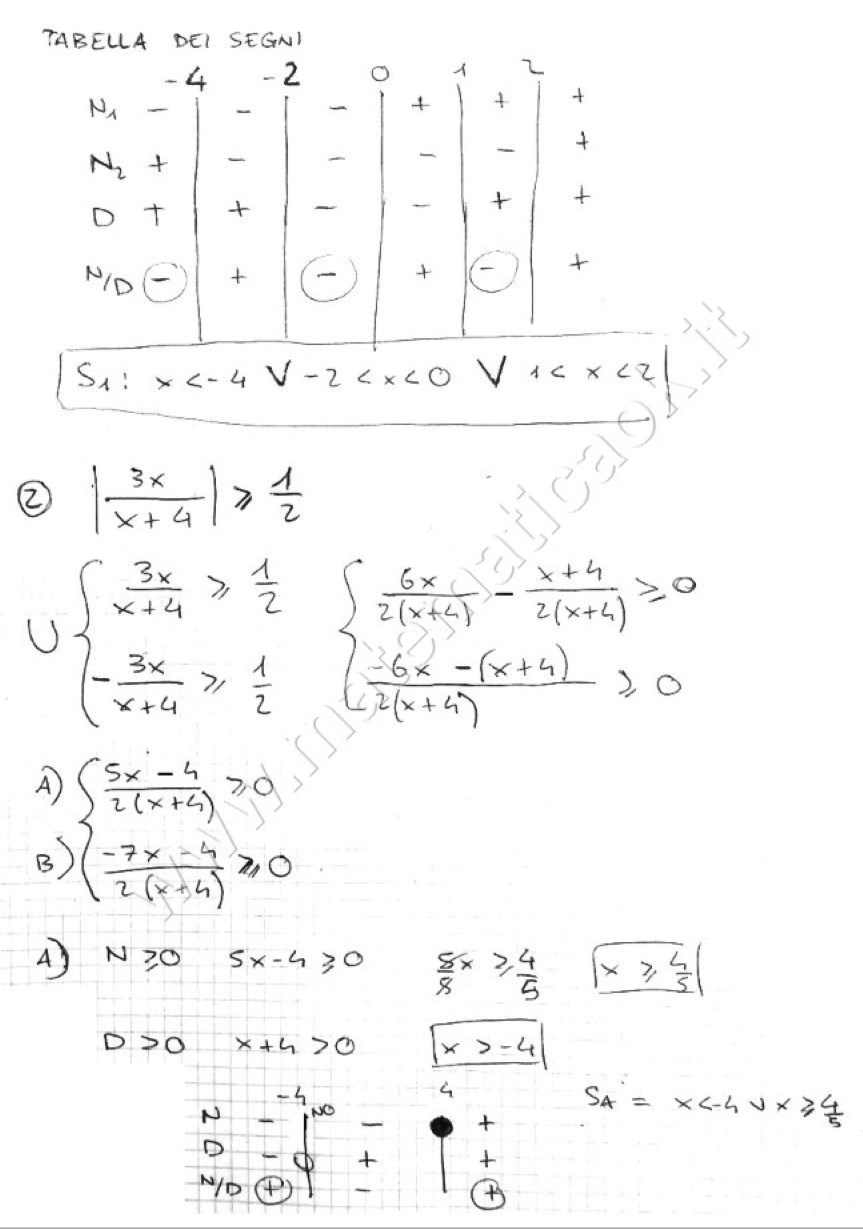 TABELLA DEI SEGNI
-4 -2 0 1 2
N₁ - - - + + +
N₂ + - - - - +
D + + - - + +
N/D - + - + - +
S₁: x<-4 V -2<x<0 V 1<x<2
② |3x/(x+4)| ⩾ 1/2
U { 3x/(x+4) ⩾ 1/2 { 6x/2(x+4) - (x+4)/2(x+4) ⩾ 0
-3x/(x+4) ⩾ 1/2 (-6x-(x+4))/2(x+4) ⩾ 0
A) { (5x-4)/2(x+4) ⩾ 0
B) (-7x-4)/2(x+4) ⩾ 0
A) N⩾0 5x-4⩾0 5/5x ⩾ 4/5 x ⩾ 4/5
D>0 x+4>0 x>-4
-4 4
NO
N - - +
D - + +
N/D + - +
S_A = x<-4 V x⩾4/5
www.matematicaok.it